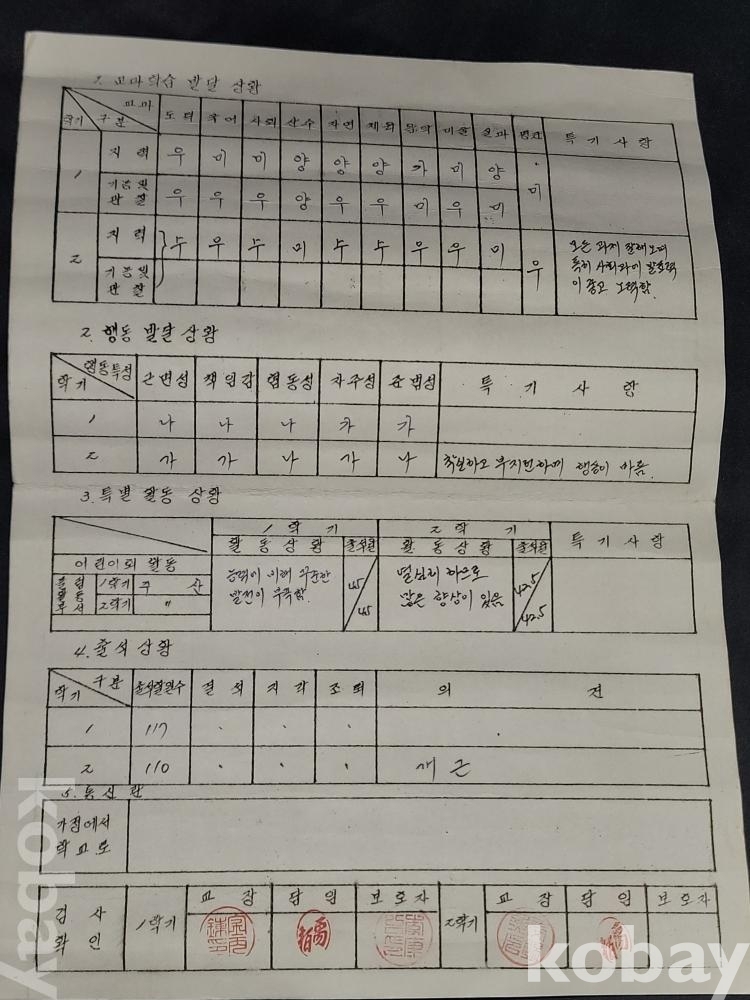 1. 교과학습 발달 상황
교과
학기 구분 도덕 국어 사회 산수 자연 체육 음악 미술 실과 평균 특기사항
1 지력 우 미 미 양 양 양 가 미 양
기능및 관찰 우 우 우 양 우 우 미 우 미 미
2 지력 수 우 수 미 수 수 우 우 미 우
모든 과제 잘해오며
특히 사회과에 발표력
이 좋고 노력함.
기능및 관찰
2. 행동 발달 상황
행동특성
학기 근면성 책임감 협동성 자주성 준법성 특기사항
1 나 나 나 가 가
2 가 가 나 가 나 착실하고 부지런하며 행실이 바름.
3. 특별 활동 상황
1학기 2학기 특기사항
활동상황 출석률 활동상황 출석률
어린이회 활동
클럽 활동 부서 1학기 주산
2학기 〃
능력에 비해 꾸준한
발전이 부족함.
45/45
열심히 하므로
많은 향상이 있음
42.5/42.5
4. 출석 상황
구분
학기 출석할일수 결석 지각 조퇴 의견
1 117 . . .
2 110 . . . 개근
5. 통신란
가정에서
학교로
검사 확인 1학기 교장 담임 보호자 2학기 교장 담임 보호자
kobay
kobay